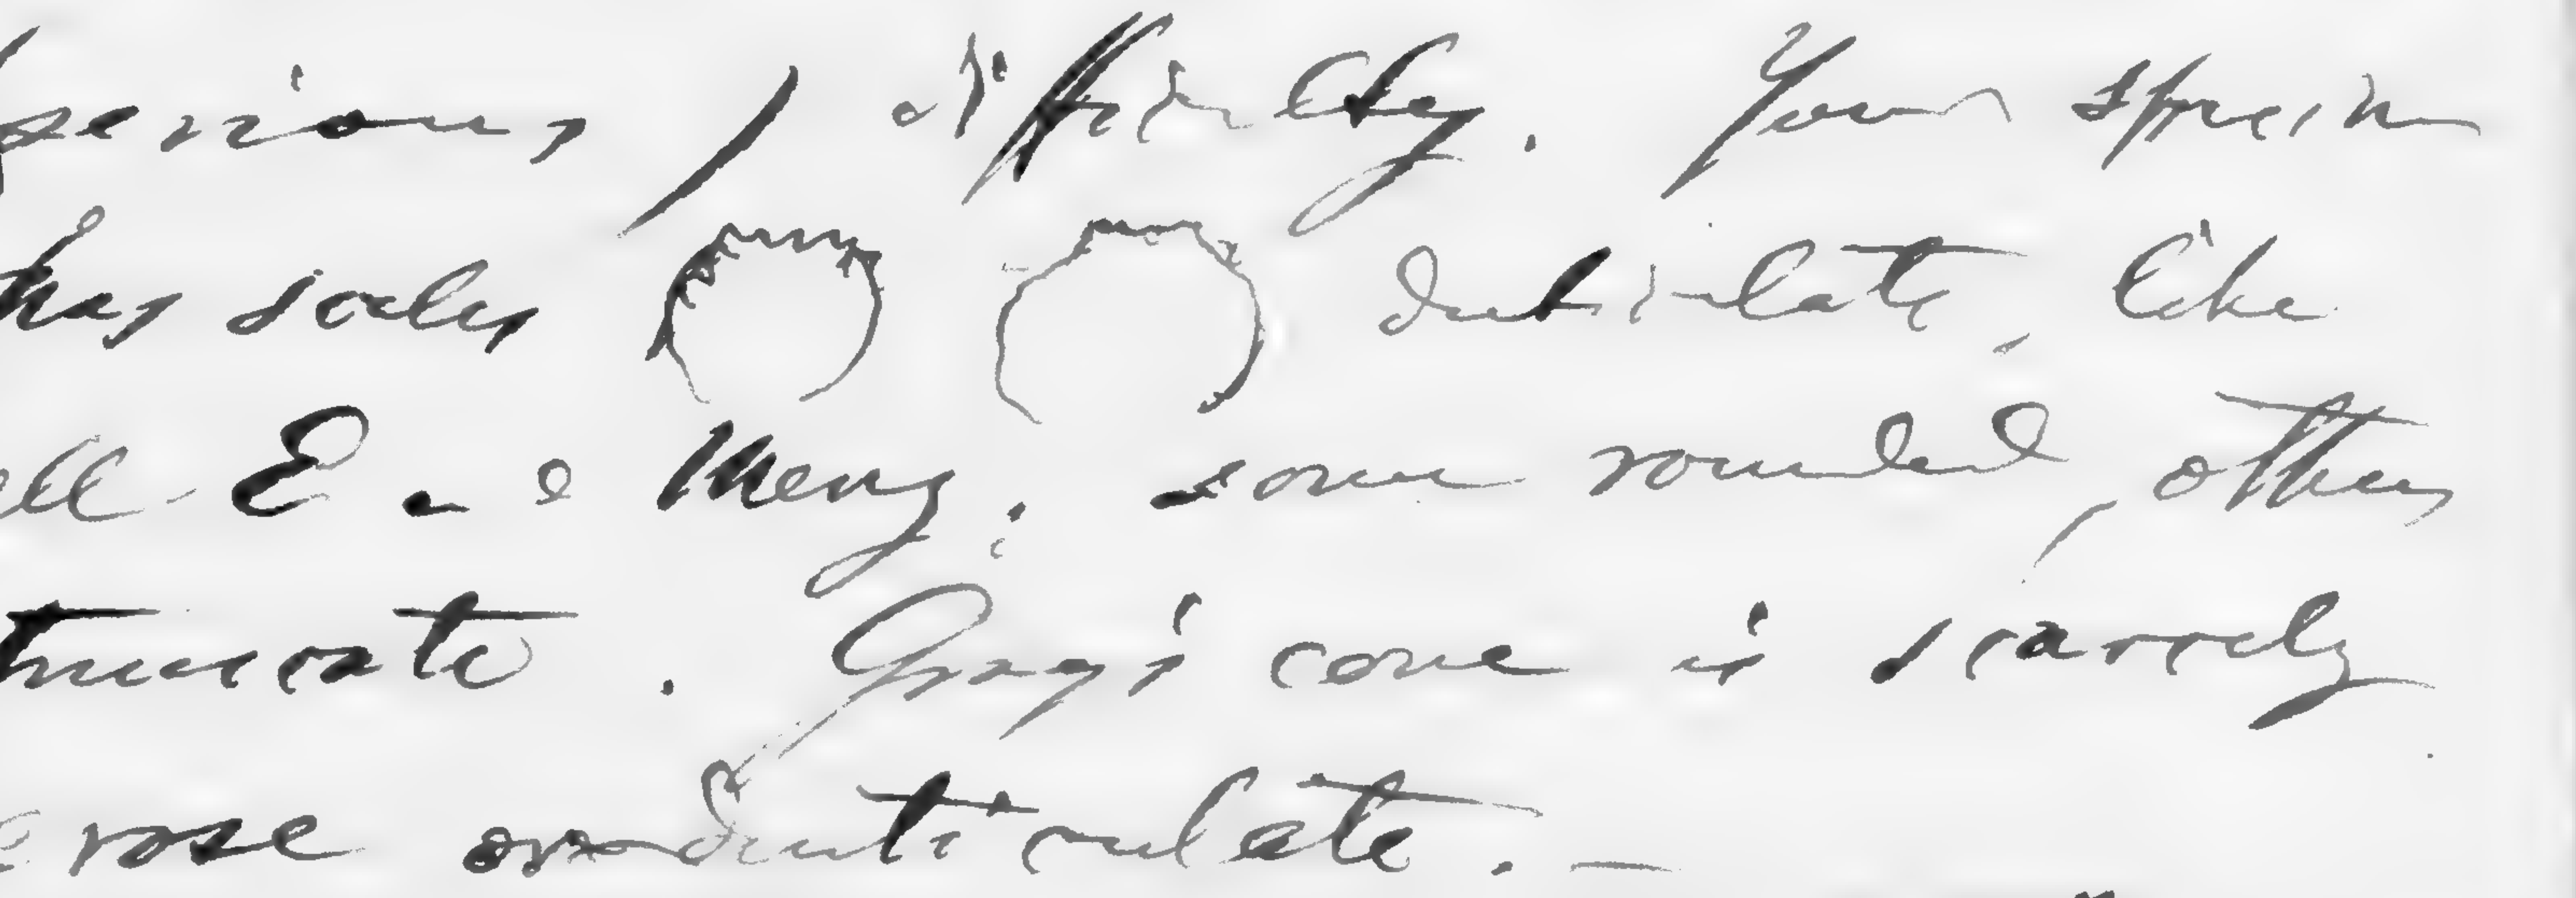 serious difficulty. Your specim
has scales denticulate, like
all Menz.; some rounded, others
truncate. Gray's cone is scarcely
erose or denticulate. —